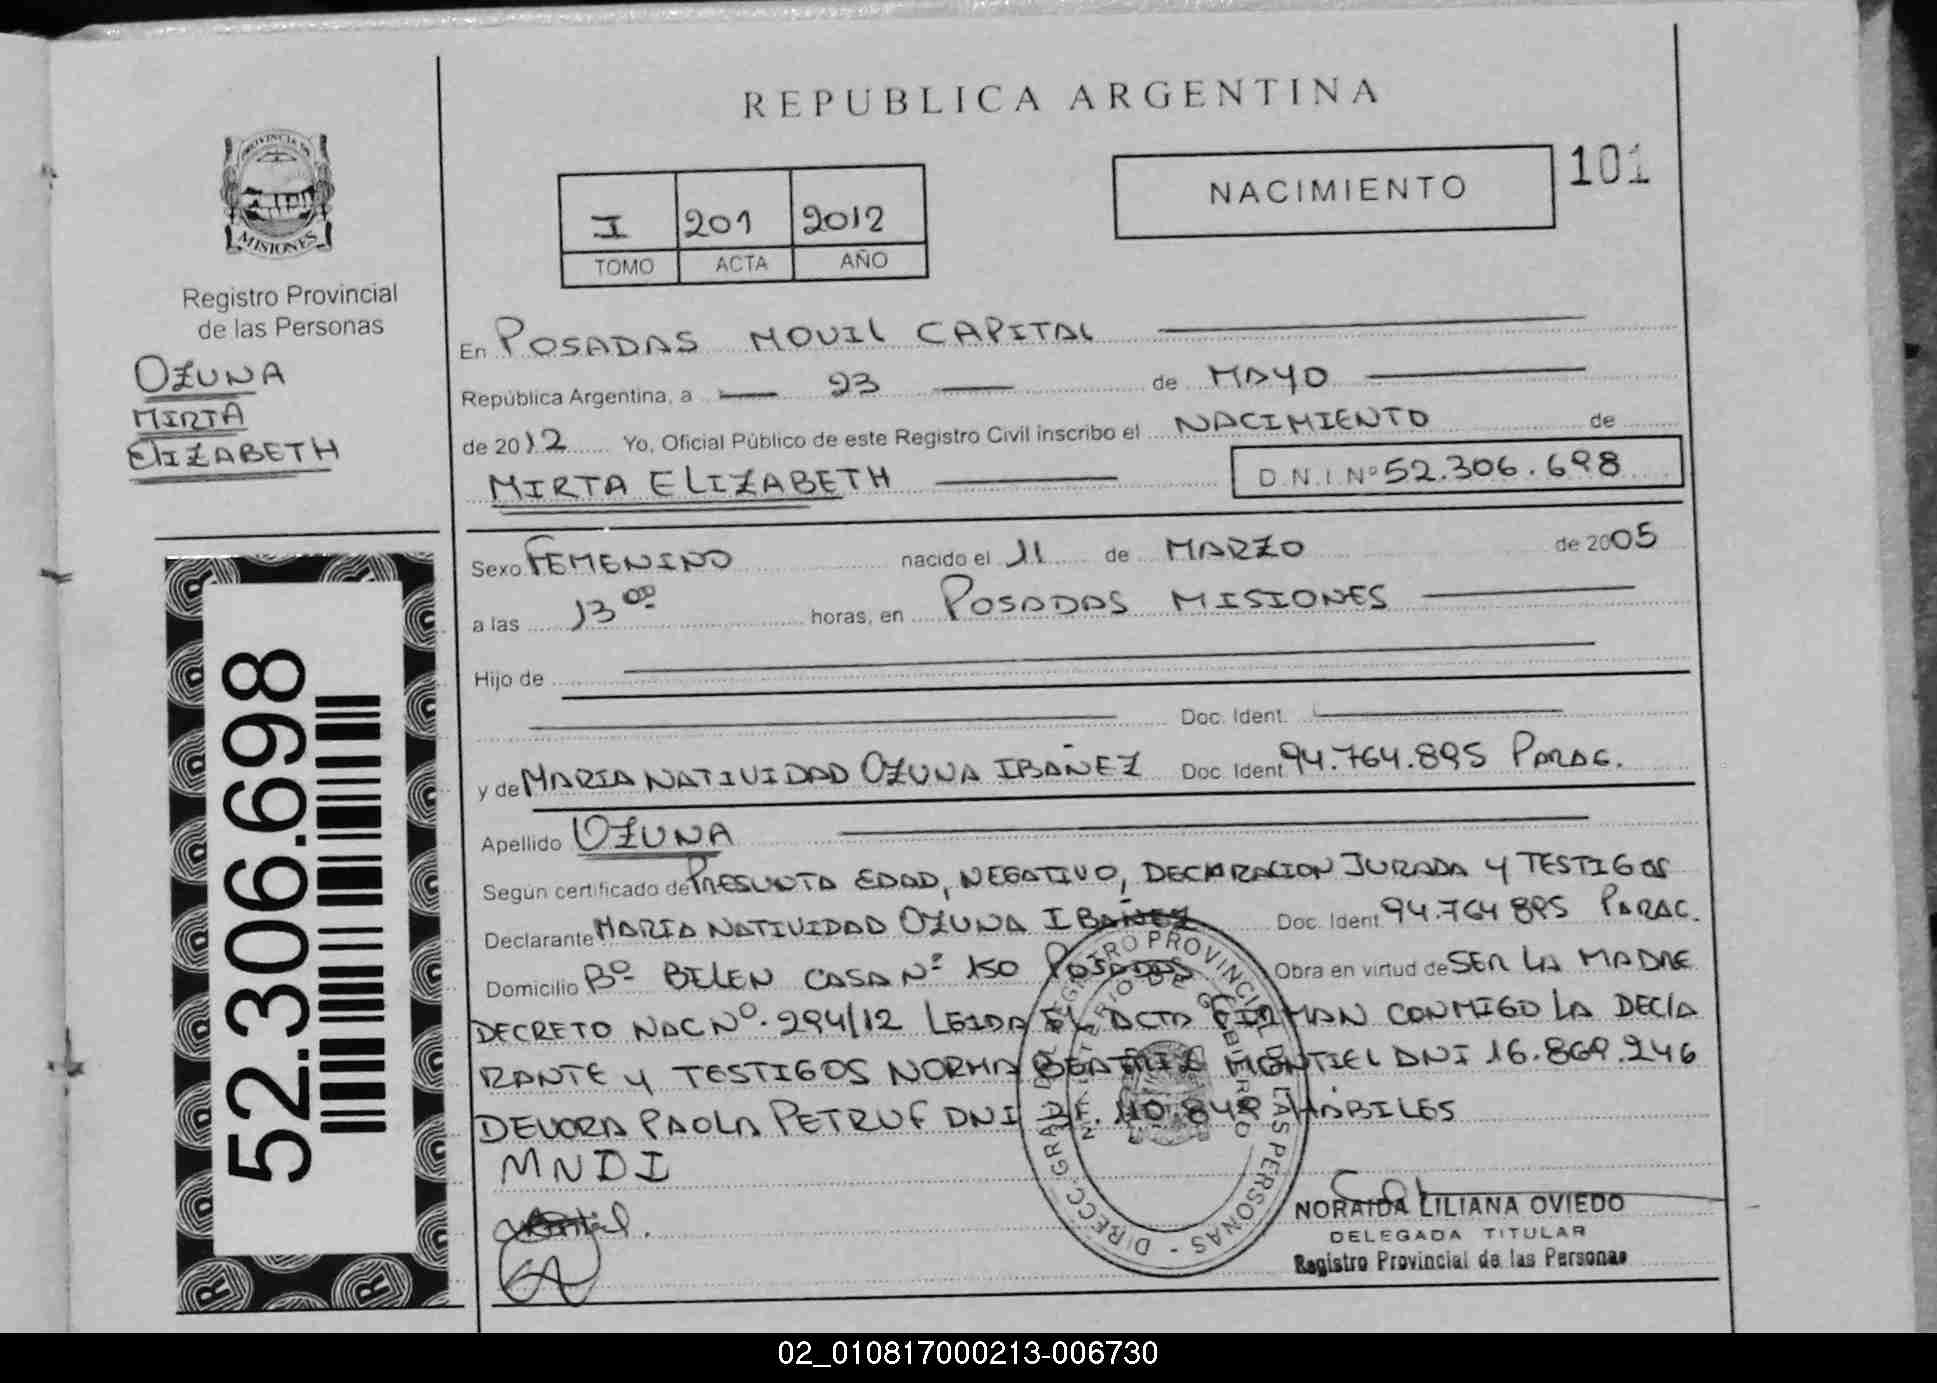 REPUBLICA ARGENTINA
PROVINCIA DE
MISIONES
Registro Provincial
de las Personas
OZUNA
MIRTA
ELIZABETH
I 201 2012
TOMO ACTA AÑO
NACIMIENTO
101
En POSADAS MOVIL CAPITAL
República Argentina, a 23 de MAYO
de 2012 Yo, Oficial Público de este Registro Civil inscribo el NACIMIENTO de
MIRTA ELIZABETH D.N.I. Nº 52.306.698
Sexo FEMENINO nacido el 11 de MARZO de 2005
a las 13 00 horas, en POSADAS MISIONES
Hijo de
Doc. Ident.
y de MARIA NATIVIDAD OZUNA IBAÑEZ Doc. Ident. 94.764.895 PARAG.
Apellido OZUNA
Según certificado de PRESUNTA EDAD, NEGATIVO, DECLARACION JURADA Y TESTIGOS
Declarante MARIA NATIVIDAD OZUNA IBAÑEZ Doc. Ident. 94.764.895 PARAG.
Domicilio Bº BELEN CASA Nº 150 POSADAS Obra en virtud de SER LA MADRE
DECRETO NAC Nº. 294/12 LEIDA EL ACTA FIRMAN CONMIGO LA DECLA
RANTE Y TESTIGOS NORMA BEATRIZ MONTIEL DNI 16.869.246
DEVORA PAOLA PETRUF DNI .110.849 HABILES
MNDI
DIRECC. GRAL. DEL REGISTRO PROVINCIAL DE LAS PERSONAS
MINISTERIO DE GOBIERNO
NORAIDA LILIANA OVIEDO
DELEGADA TITULAR
Registro Provincial de las Personas
52.306.698
02_010817000213-006730